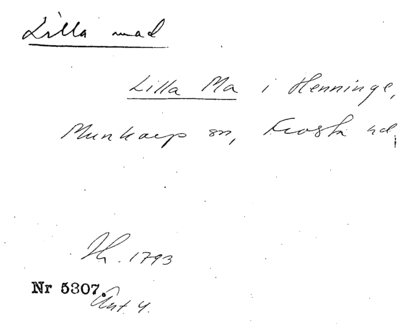 Lilla mad
Lilla Ma i Henninge,
Munkarp sn, Frosta hd,
Sk. 1793
Nr 5307.
Ant. 4.